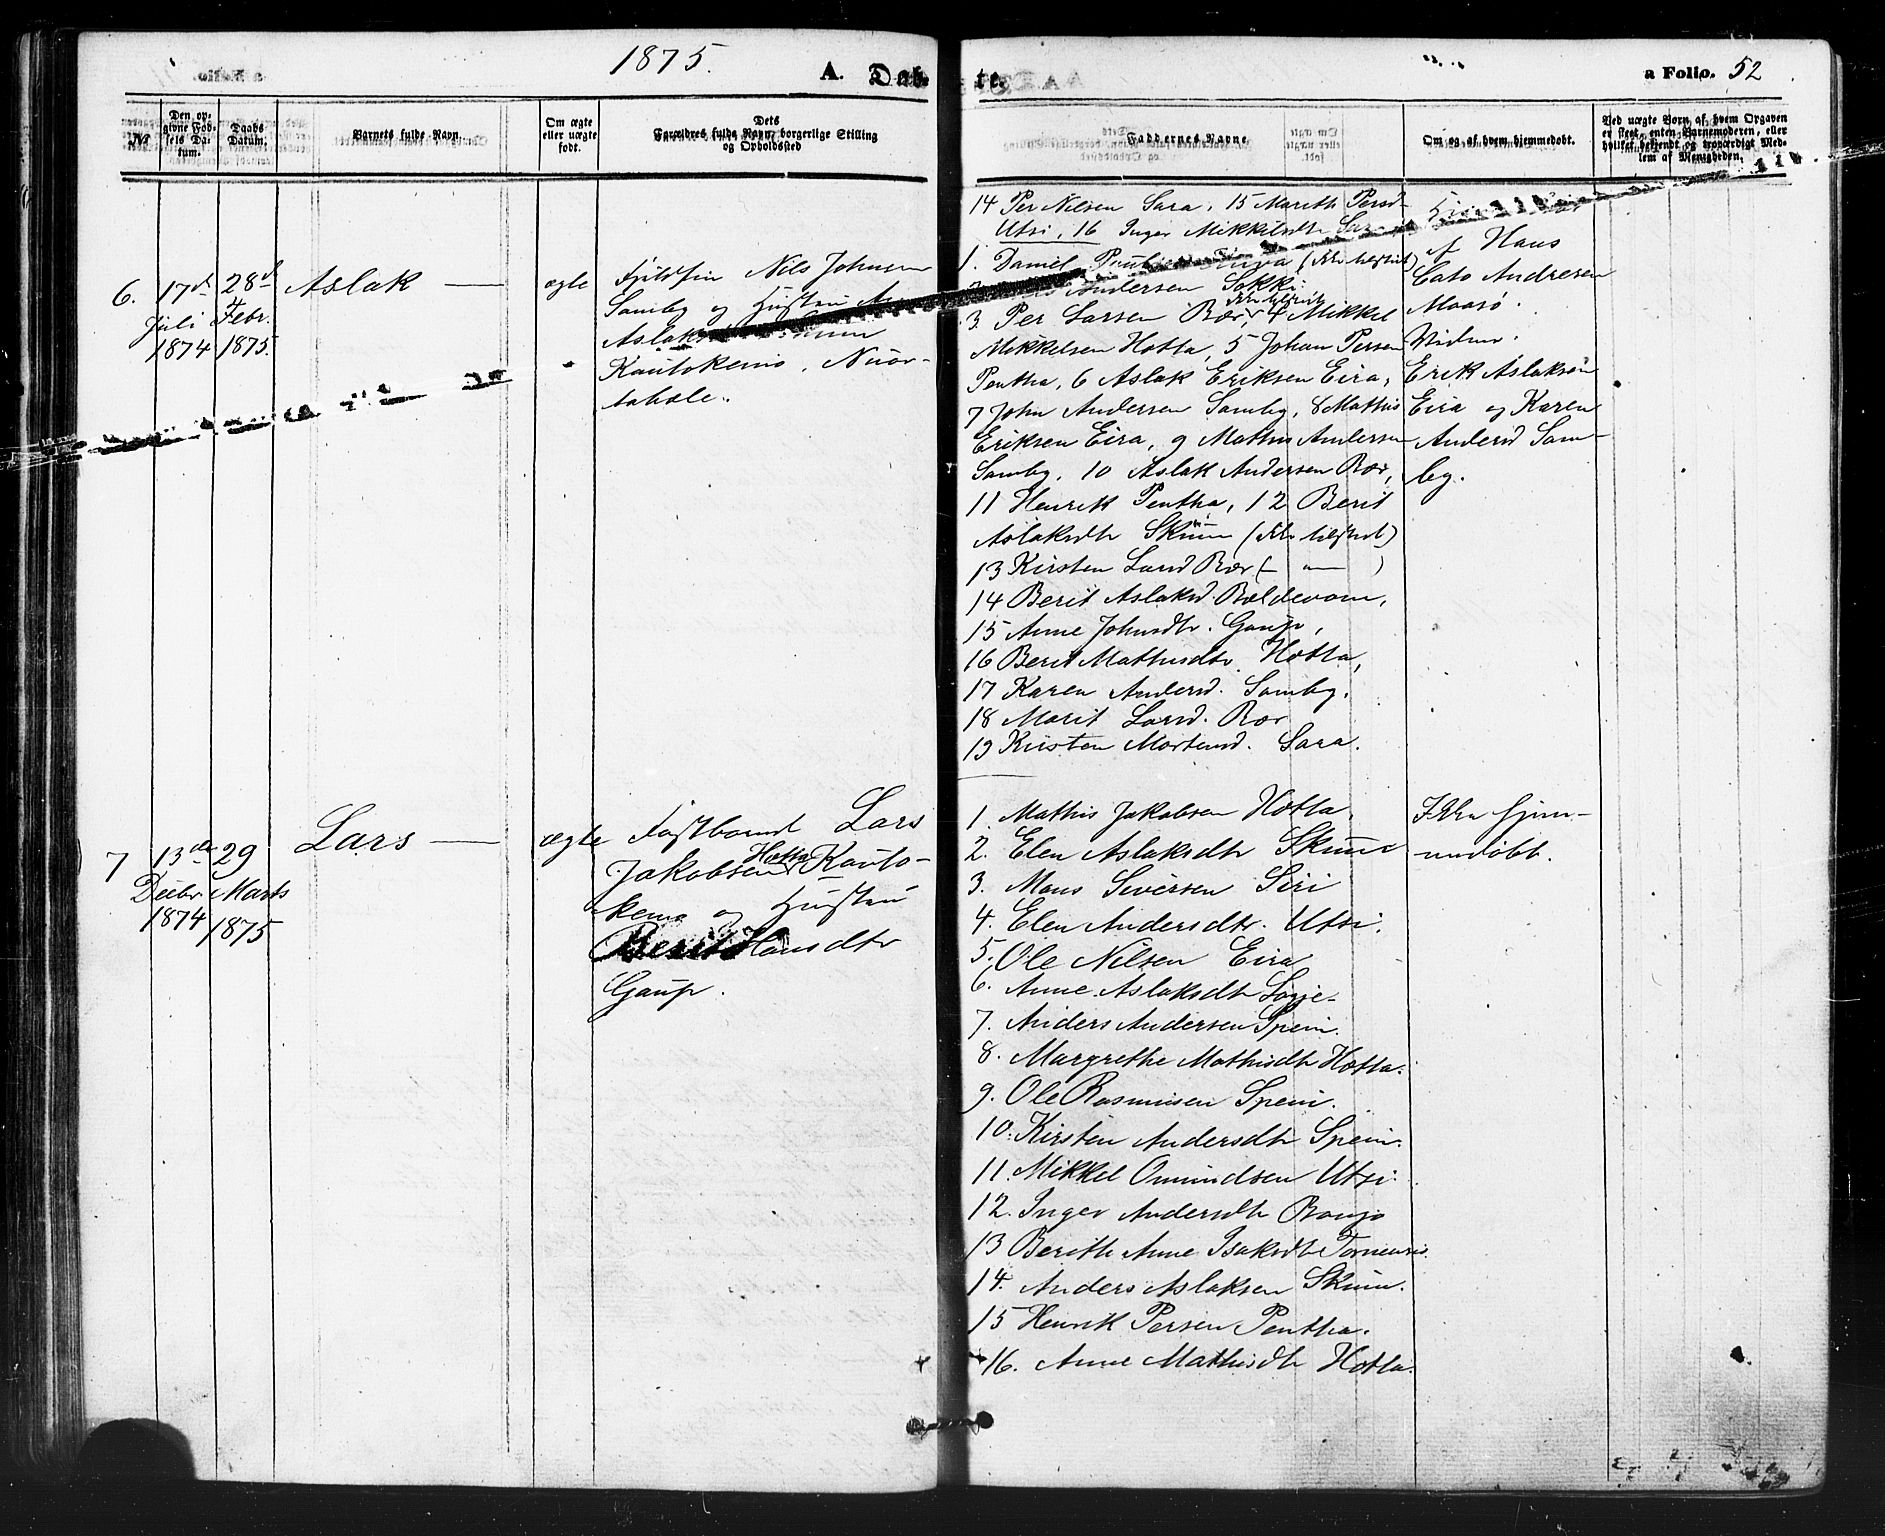 1875.
A. Døb-
te.
a Folio. 52
№
Den opgivne Fødsels Datum.
Daabs Datum.
Barnets fulde Navn
Om ægte eller uægte født.
Dets Forældres fulde Navn, borgerlige Stilling og Opholdssted
Faddernes Navne
Om og af hvem hjemmedøbt.
Ved uægte Børn, af hvem Opgaven er skeet, enten Barnemoderen, eller hvilket bekjendt og troværdigt Medlem af Menigheden.
14 Per Nilsen Sara, 15 Mareth Persd
Utsi, 16 Inger Mikkelsdtr
6.
17d
Juli
1874
28d
Febr.
1875.
Aslak
ægte
Fjeldfin Nils Johnsen
Samby og Hustru
Kautokeino,
1. Daniel (ikke beskrit)
Andersen Sokki
3. Per Larsen Bær, 4 Mikkel
Mikkelsen Hætta, 5 Johan Persen
Pentha, 6 Aslak Eriksen Eira,
7 John Andersen Samby, 8 Mathis
Eriksen Eira, 9 Mathis Andersen
Samby, 10 Aslak Andersen Bær,
11 Henrik Pentha, 12 Berit
Aslaksdtr Skum
13 Kirsten Larsd Bær ( — )
14 Berit Aslaksd.
15 Anne Johnsdtr. Gaup,
16 Berit Mathisdtr. Hætta,
17 Karen Andersd. Samby.
18 Marit Larsd. Bær
19 Kirsten Mortensd. Sara.
af Hans
Cato Andresen
Maasø.
Vidner.
Erik Aslaksen
Eira og Karen
Andersd Sam-
by.
7
13de
Decbr
1874
29
Marts
1875
Lars
ægte
Fastboend Lars
Jakobsen Hætta Kauto-
keino og Hustru
Berit Hansdtr
Gaup.
1. Mathis Jakobsen Hætta.
2. Elen Aslaksdtr Skum
3. Mons Siversen Siri
4. Elen Andersdtr. Utsi.
5. Ole Nilsen Eira
6. Anne Aslaksdtr Logje
7. Anders Andersen Spein.
8. Margrethe Mathisdtr Hætta.
9. Ole Rasmusen Spein.
10. Kirsten Andersdtr Spein.
11. Mikkel Omundsen Utsi.
12. Inger Andersdtr Bongo
13 Berith Anne Isaksdtr Tornensis
14. Anders Aslaksen Skum.
15 Henrik Persen Pentha.
16. Anne Mathisdtr Hætta.
Ikke hjem-
medøbt.